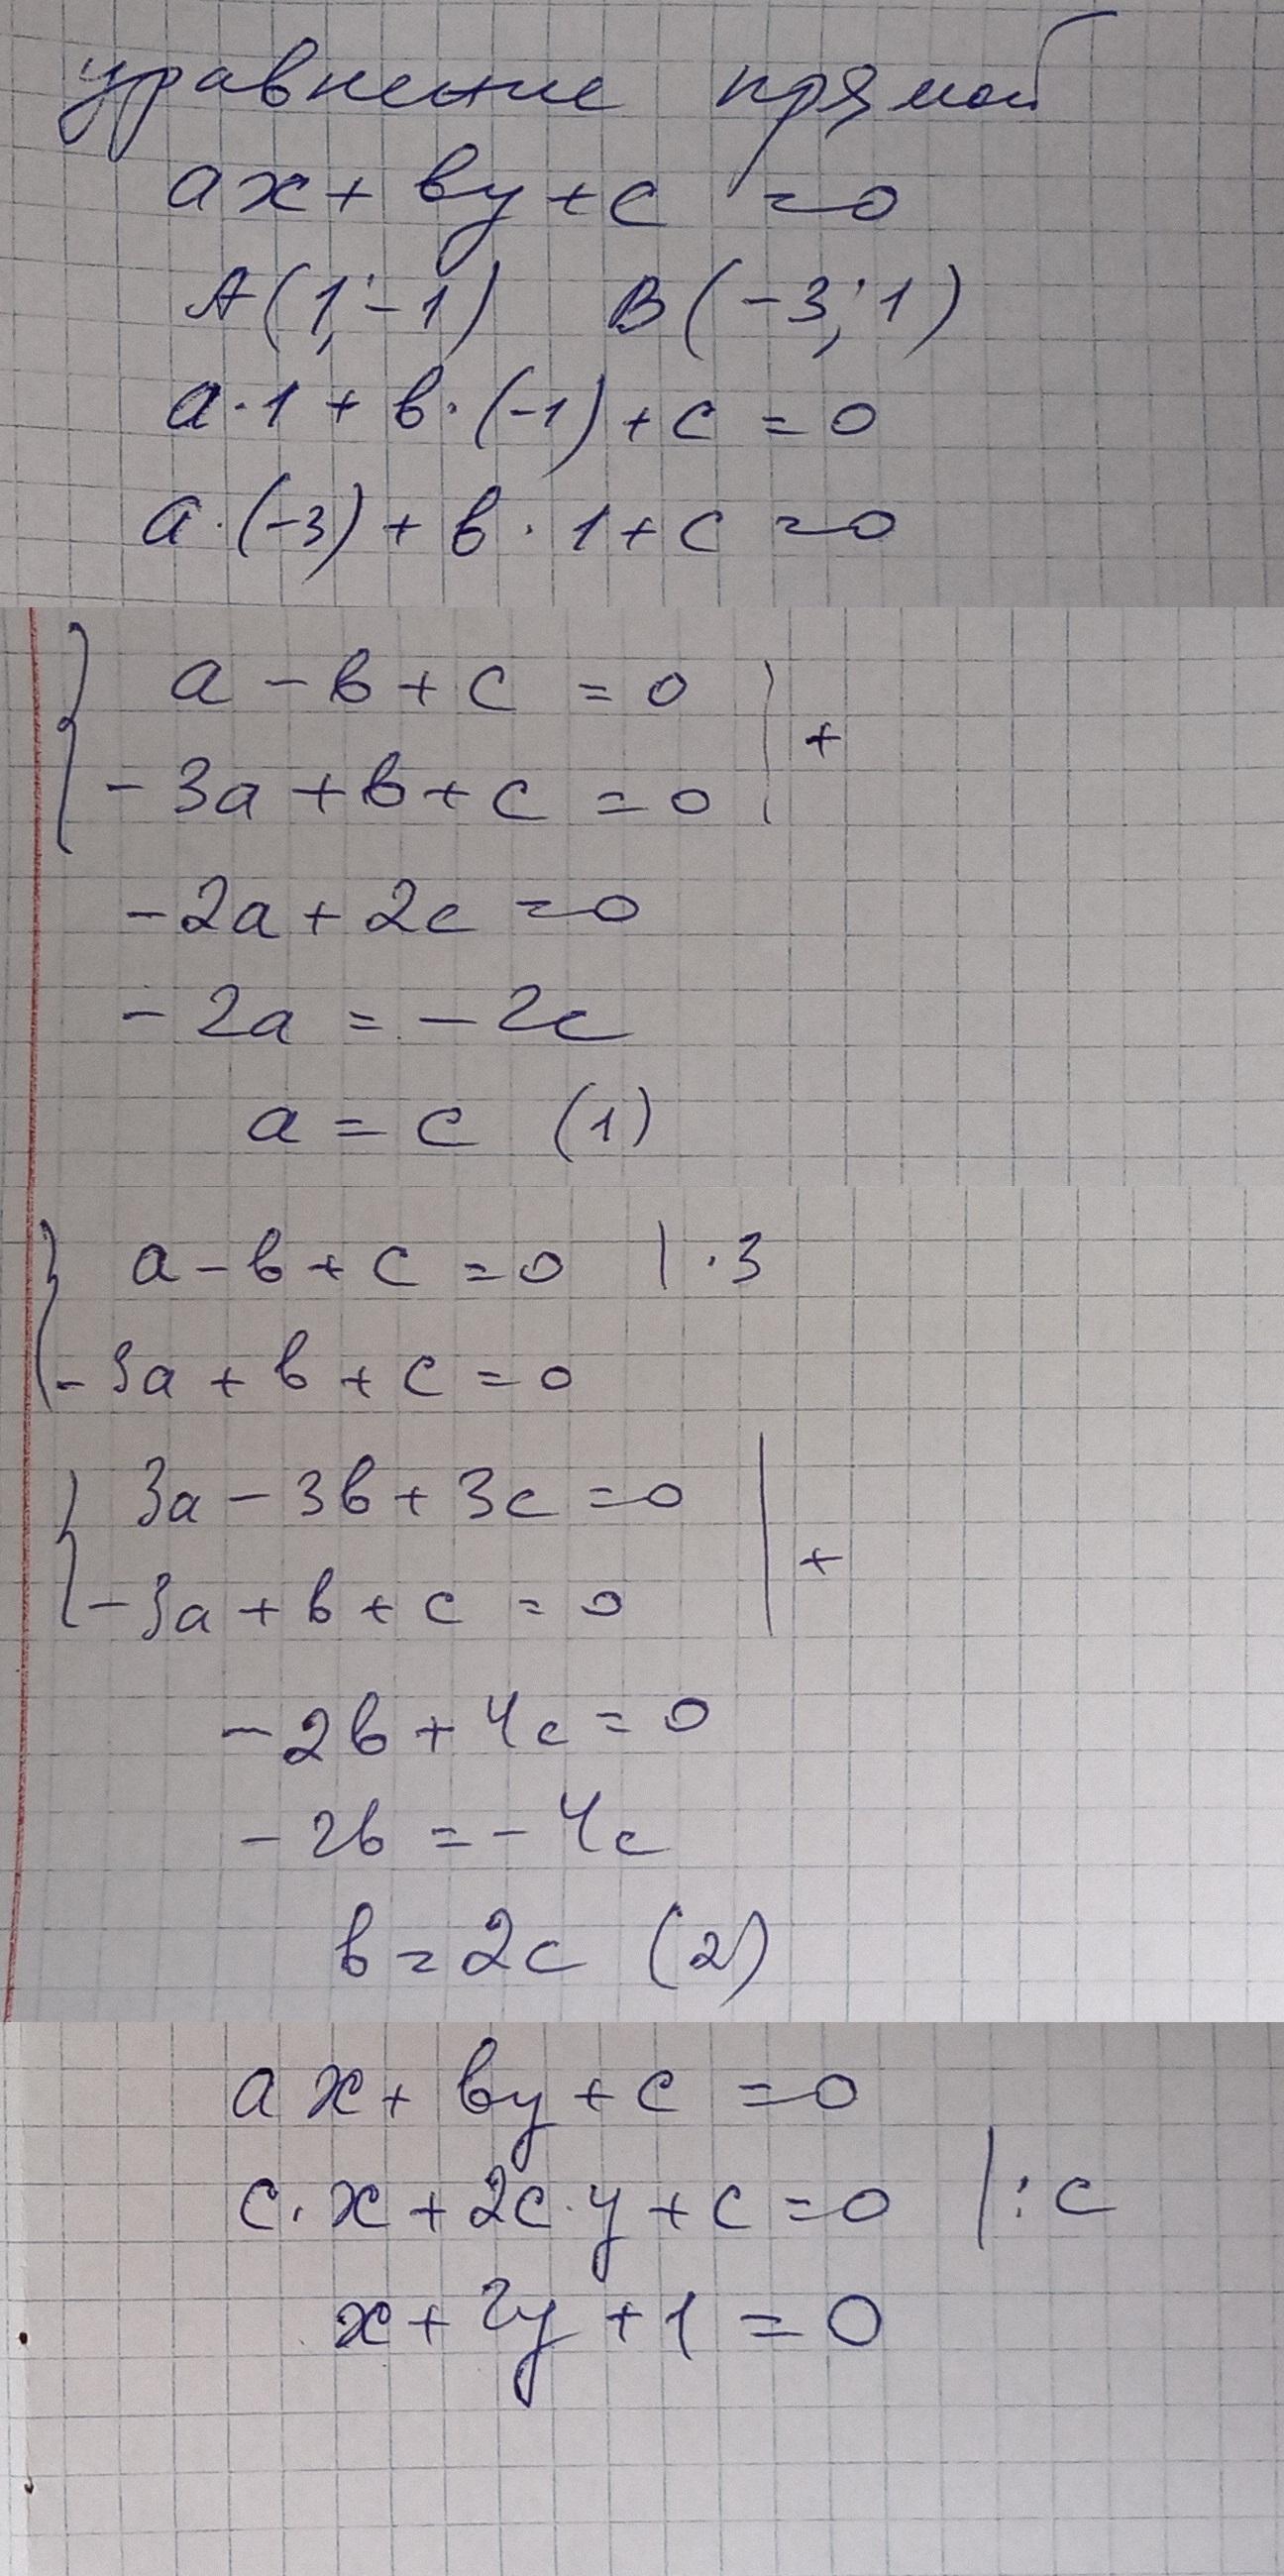 уравнение прямой
ax + by + c = 0
A(1; -1) B(-3; 1)
a·1 + b·(-1) + c = 0
a·(-3) + b·1 + c = 0
{ a - b + c = 0 | +
-3a + b + c = 0
-2a + 2c = 0
-2a = -2c
a = c (1)
{ a - b + c = 0 | ·3
-3a + b + c = 0
{ 3a - 3b + 3c = 0 | +
-3a + b + c = 0
-2b + 4c = 0
-2b = -4c
b = 2c (2)
ax + by + c = 0
c·x + 2c·y + c = 0 | :c
x + 2y + 1 = 0